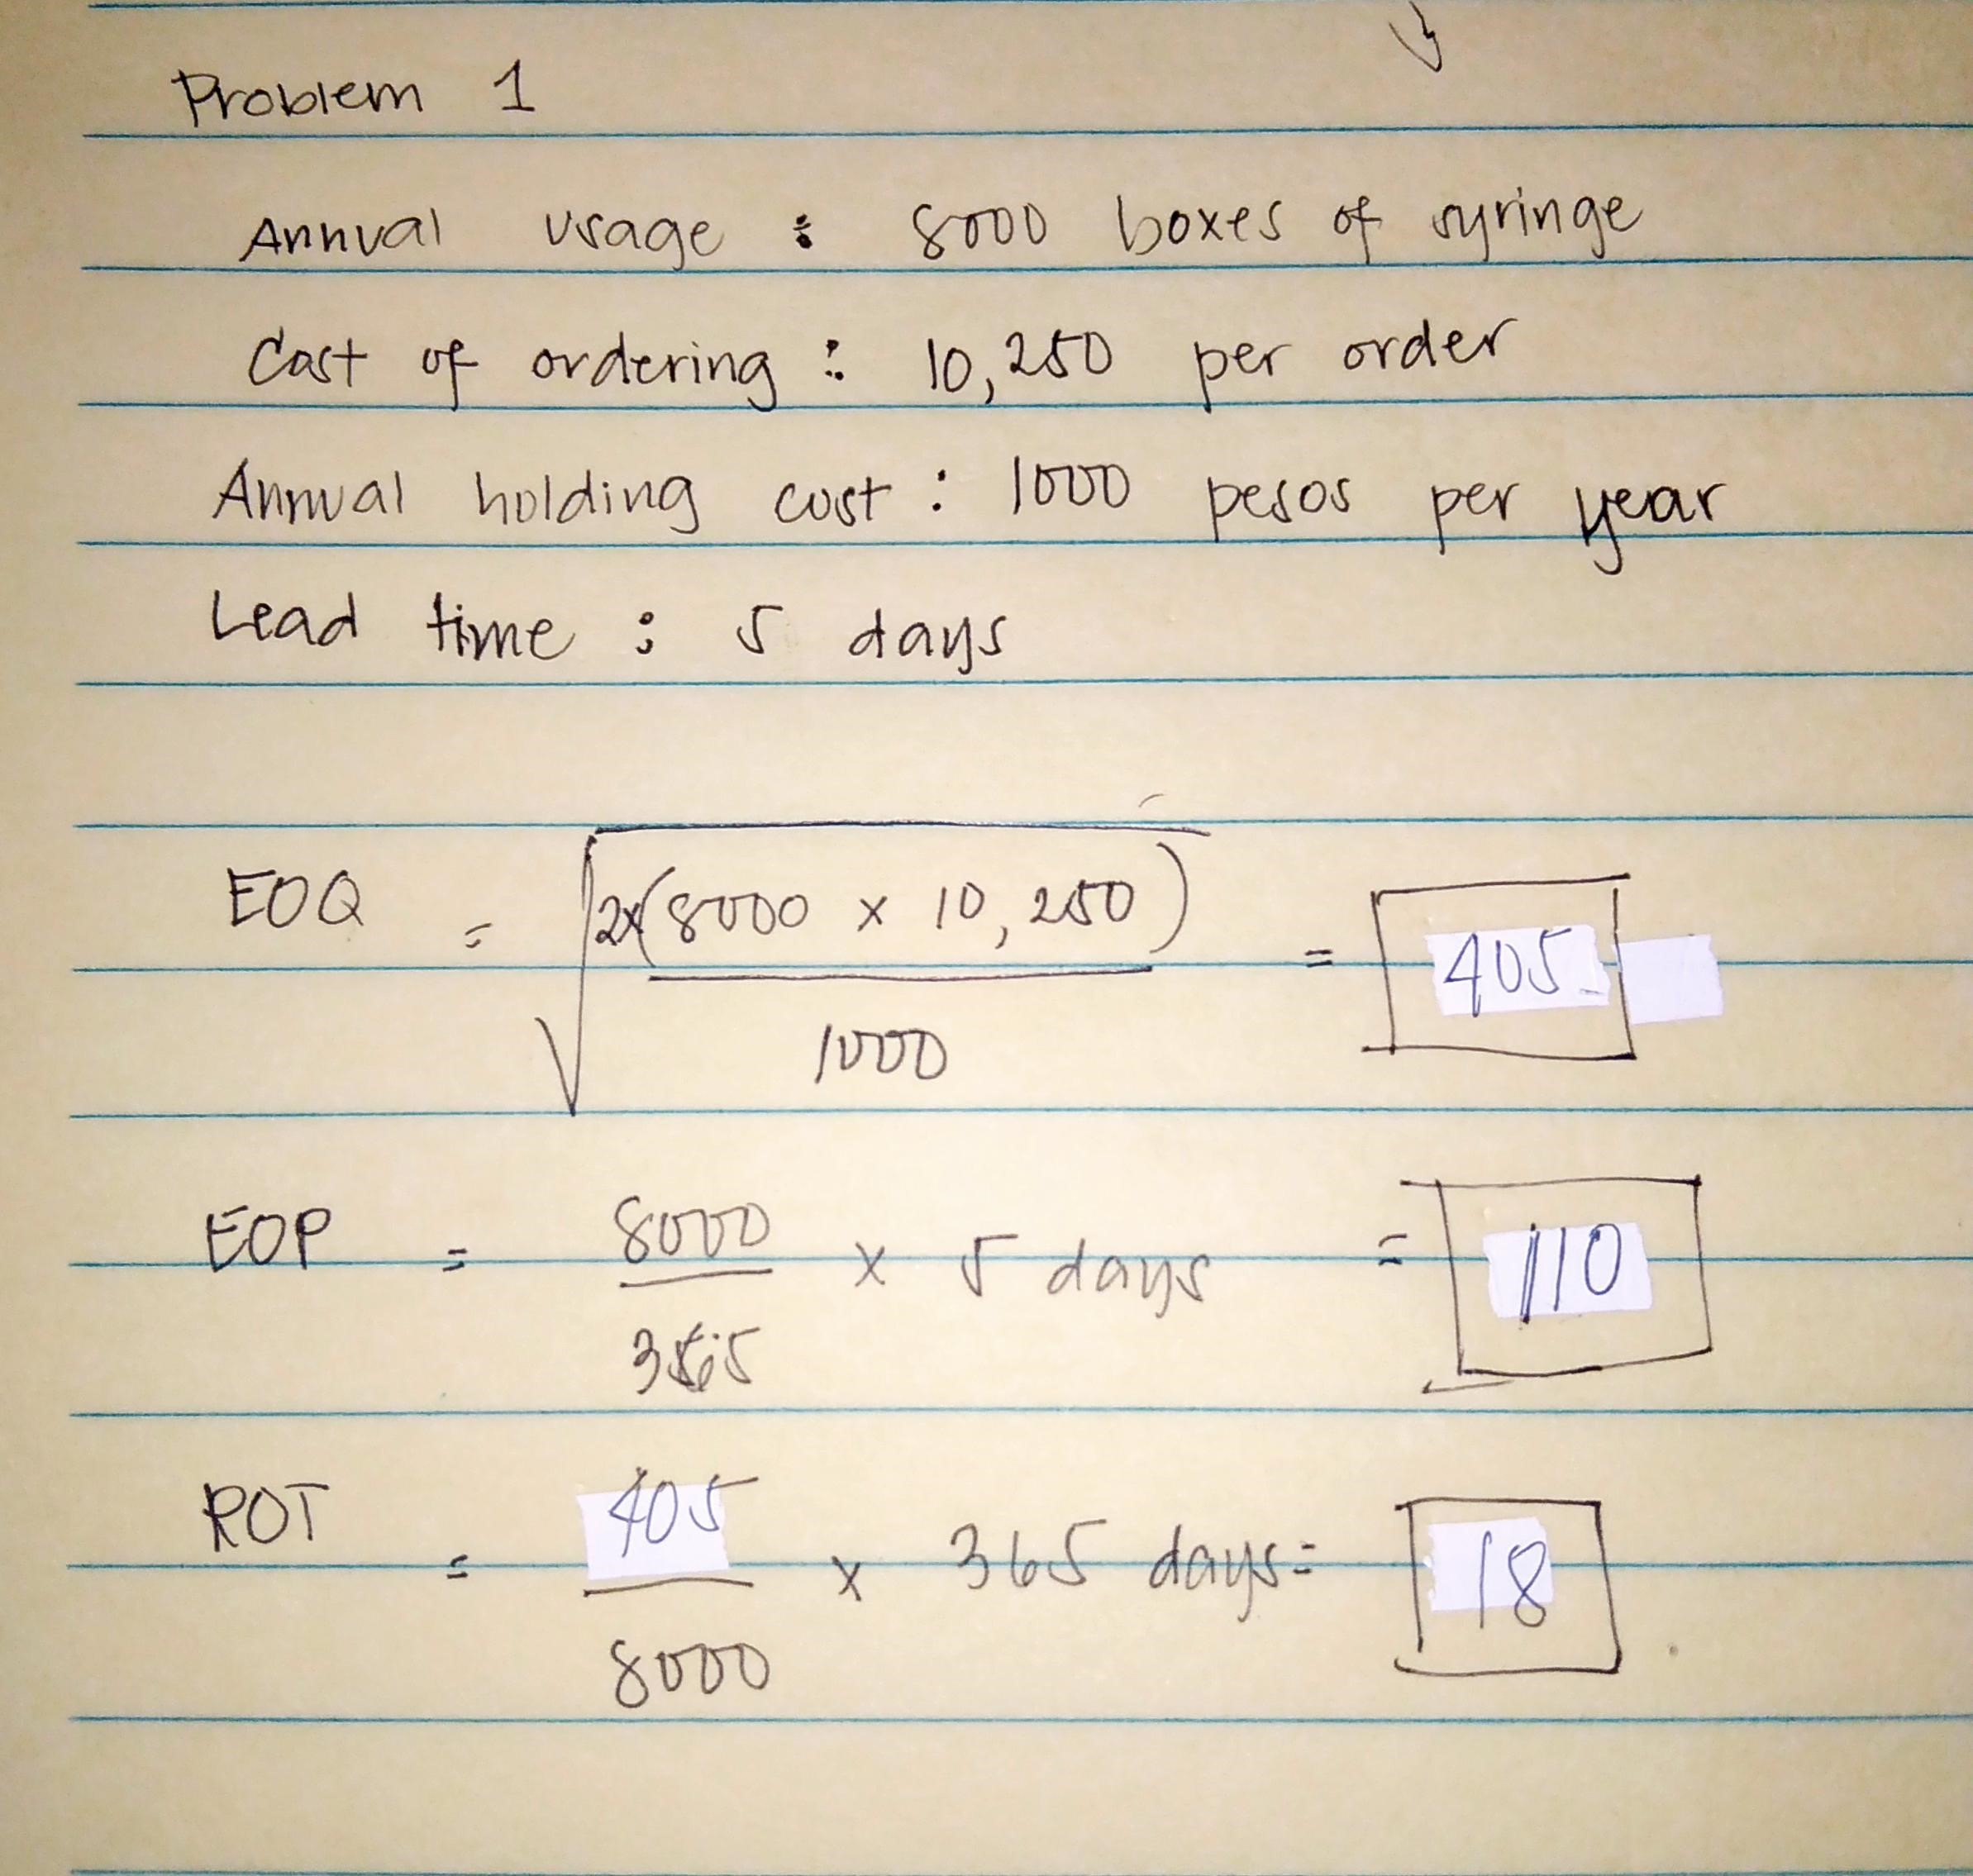 Problem 1
Annual usage : 8000 boxes of syringe
Cost of ordering : 10,250 per order
Annual holding cost : 1000 pesos per year
Lead time : 5 days
EOQ = √2x(8000 x 10,250) = 405
1000
EOP = 8000 x 5 days = 110
365
ROT = 405 x 365 days = 18
8000